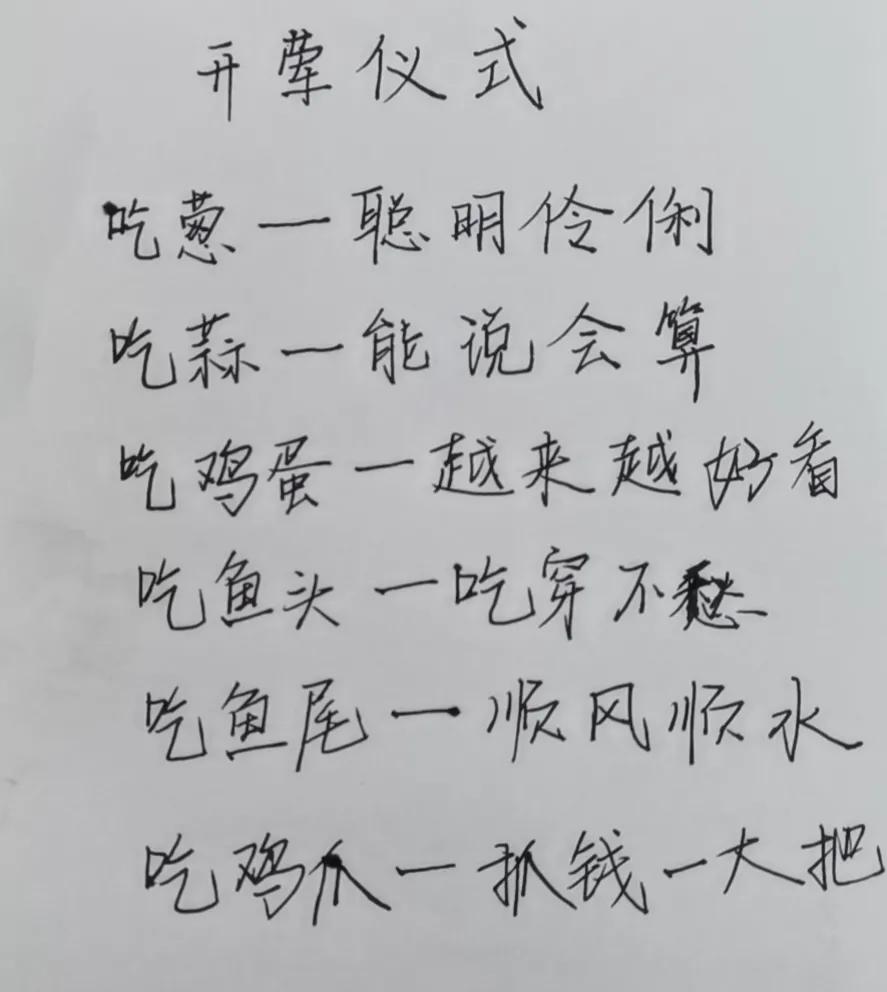 开荤仪式
吃葱一聪明伶俐
吃蒜一能说会算
吃鸡蛋一越来越好看
吃鱼头一吃穿不愁
吃鱼尾一顺风顺水
吃鸡爪一抓钱一大把